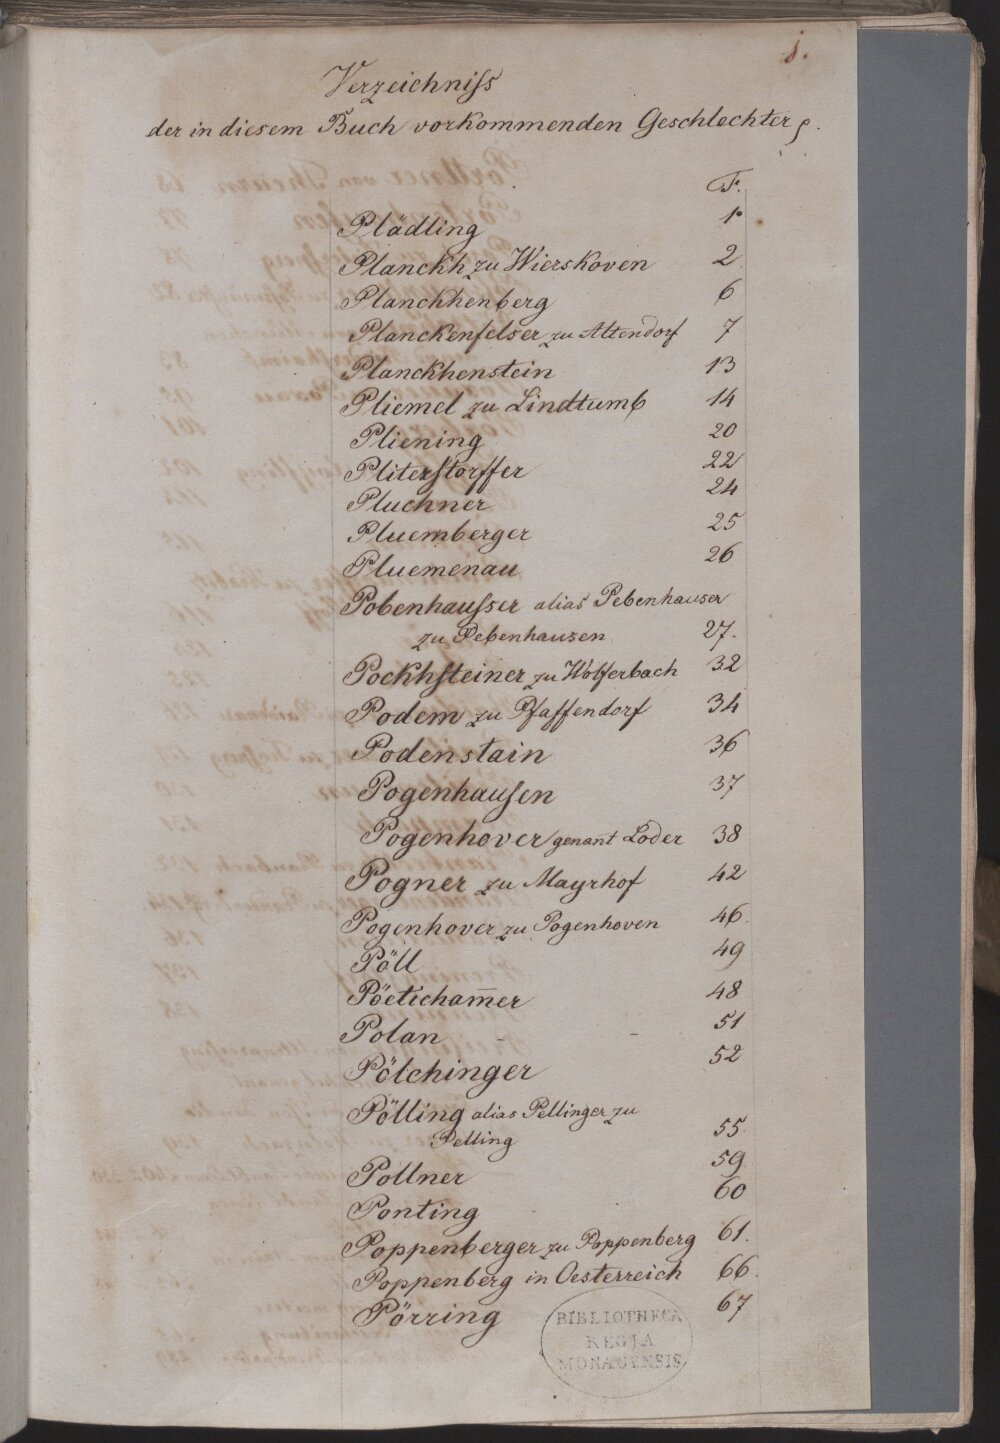 j.
Verzeichniſs
der in diesem Buch vorkommenden Geschlechter.
F.
Plädling 1
Planckh zu Wierskoven 2
Planckhenberg 6
Planckenfelser zu Altendorf 7
Planckhenstein 13
Pliemel zu Lindtumb 14
Pliening 20
Pliterſtorffer 22
Pluchner 24
Pluemberger 25
Pluemenau 26
Pobenhauſser alias Pebenhauser
zu Pebenhausen 27.
Pockhſteiner zu Wolferbach 32
Podem zu Pfaffendorf 34
Podenstain 36
Pogenhauſen 37
Pogenhover genant Loder 38
Pogner zu Mayrhof 42
Pogenhover zu Pogenhoven 46.
Pöll 49
Pöeticham̅er 48
Polan 51
Pölchinger 52
Pölling alias Pellinger zu
Pelling 55
Pollner 59
Ponting 60
Poppenberger zu Poppenberg 61.
Poppenberg in Oesterreich 66.
Pörring 67
BIBLIOTHECA
REGIA
MONACENSIS